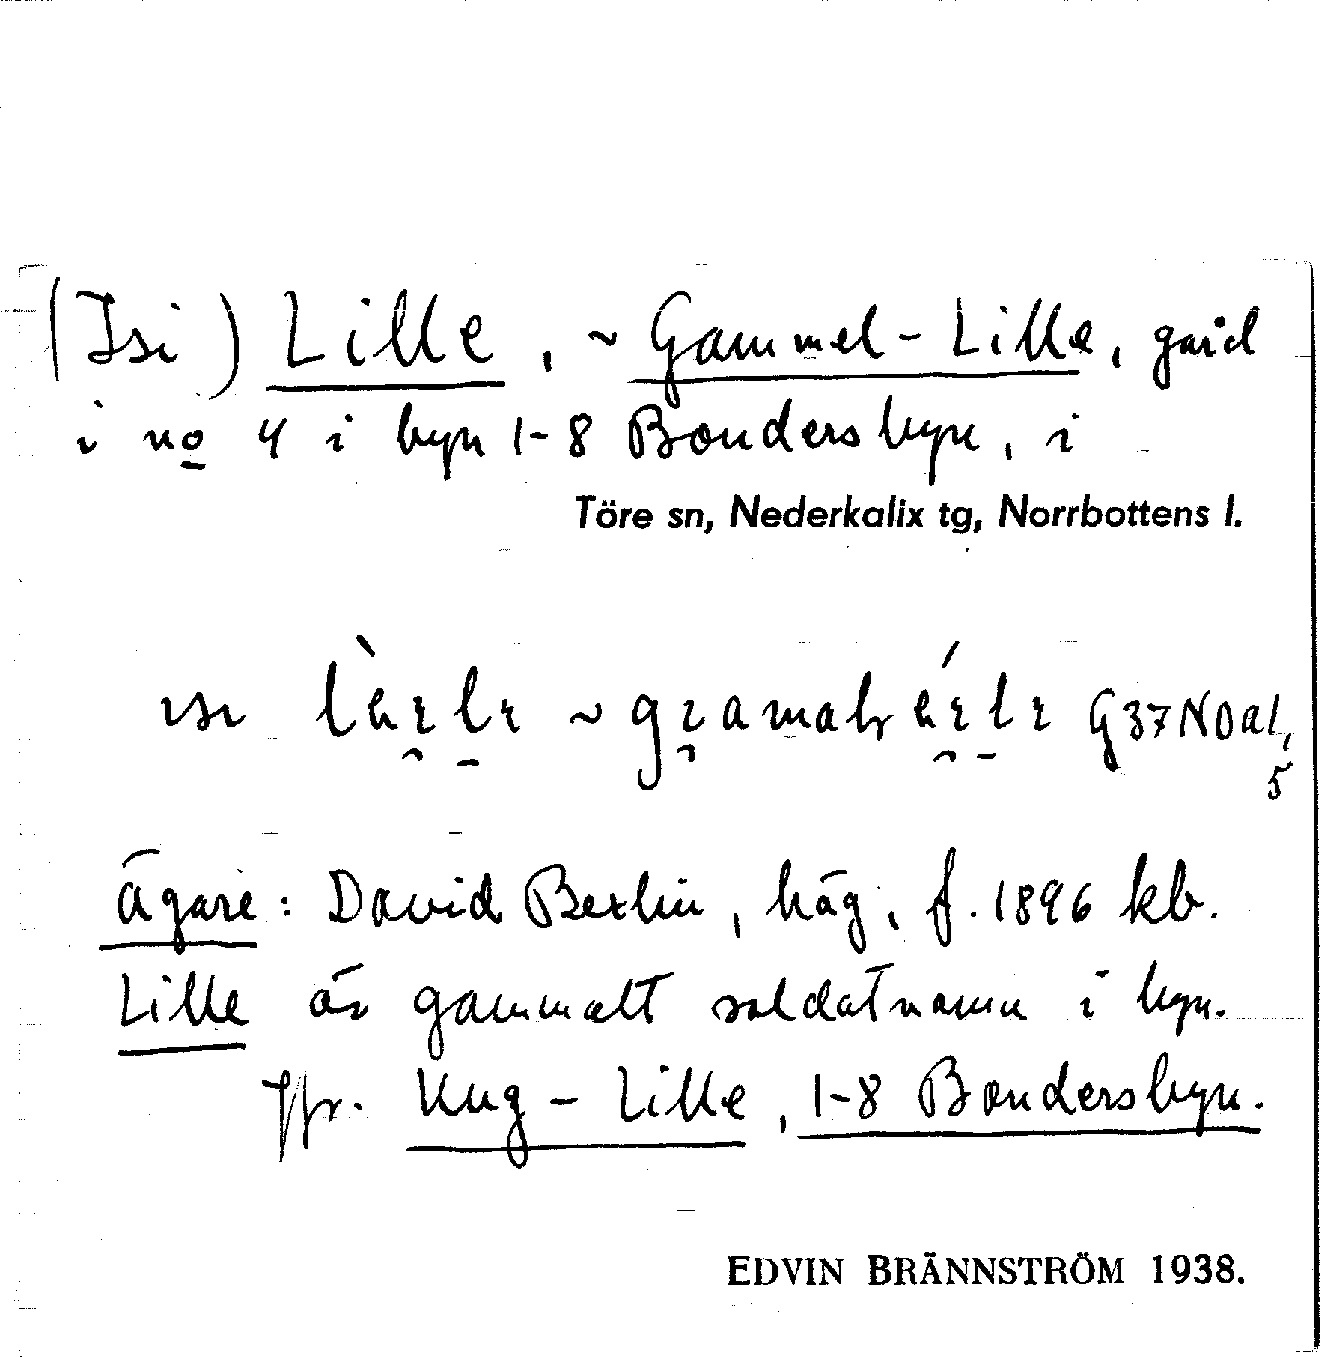 (Isi) Lille, ~ Gammel-Lille, gård
i no 4 i byn 1-8 Bondersbyn, i
Töre sn, Nederkalix tg, Norrbottens l.
ısı ~ G 37 N0a1,
5
Ägare: David Berlin, häg, f. 1896 kb.
Lille är gammalt soldatnamn i byn.
Jfr. Ung-Lille, 1-8 Bondersbyn.
EDVIN BRÄNNSTRÖM 1938.